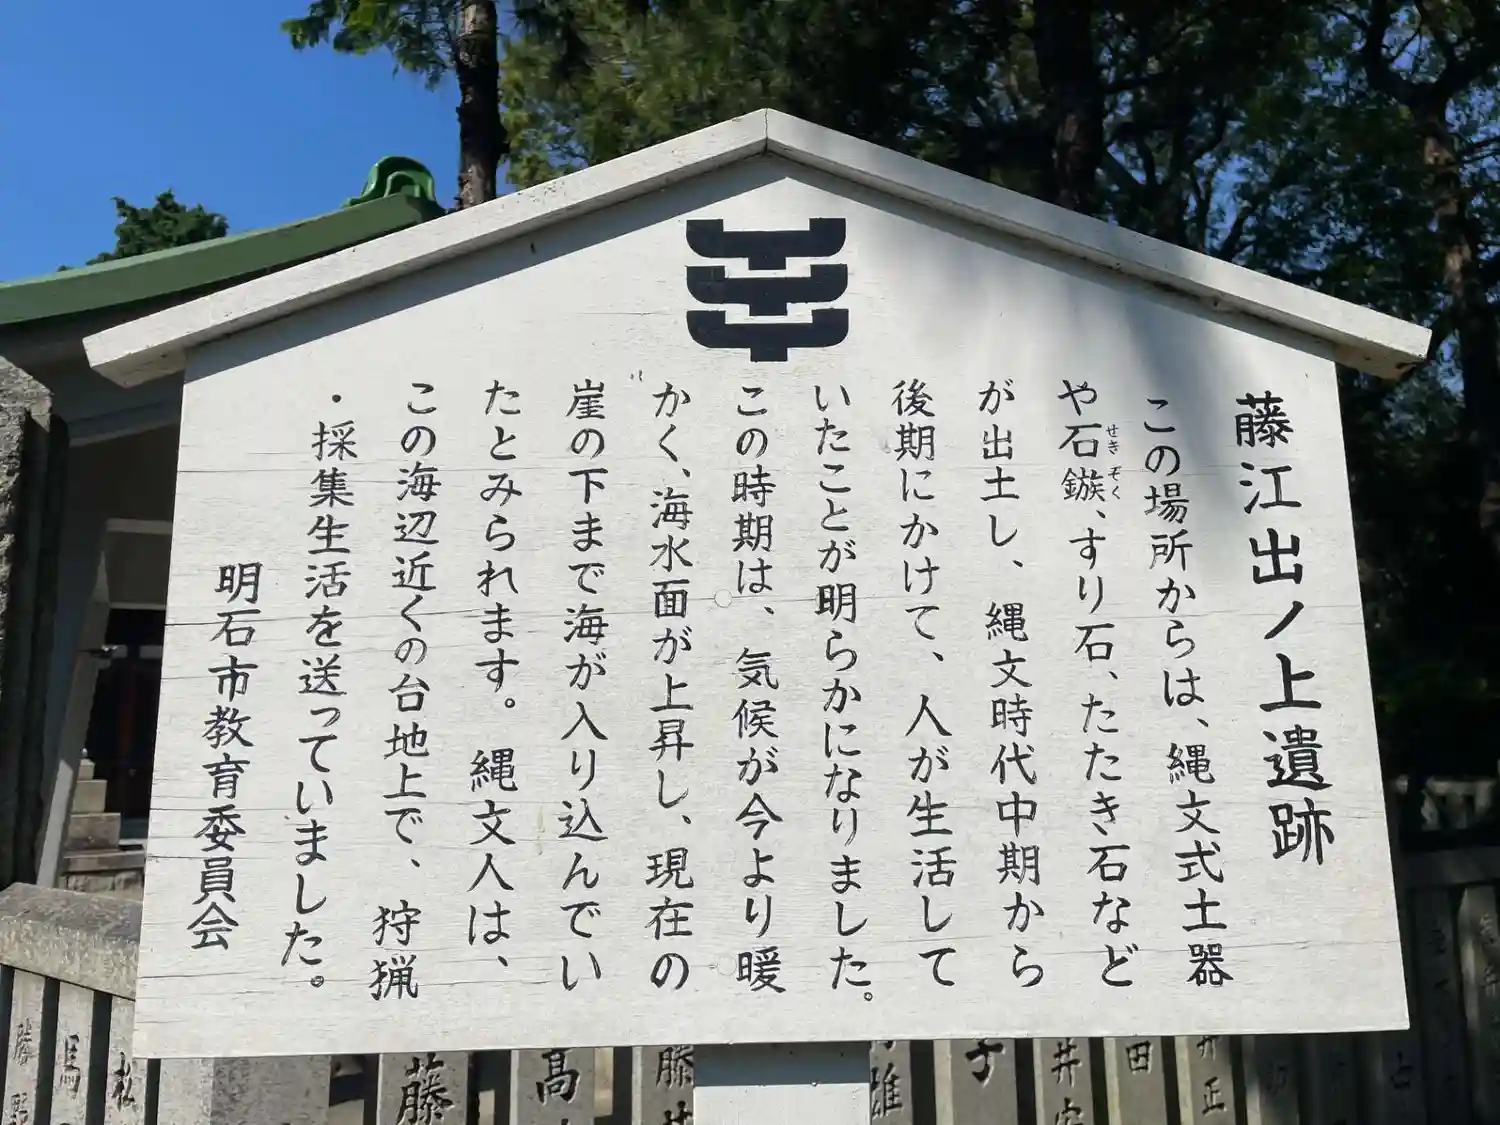 藤江出ノ上遺跡
この場所からは、縄文式土器
や石鏃、すり石、たたき石など
せき ぞく
が出土し、縄文時代中期から
後期にかけて、人が生活して
いたことが明らかになりました。
この時期は、気候が今より暖
かく、海水面が上昇し、現在の
崖の下まで海が入り込んでい
たとみられます。縄文人は、
この海辺近くの台地上で、狩猟
・採集生活を送っていました。
明石市教育委員会
藤
馬
松
藤
高
藤井
雄
子
井
田
井正